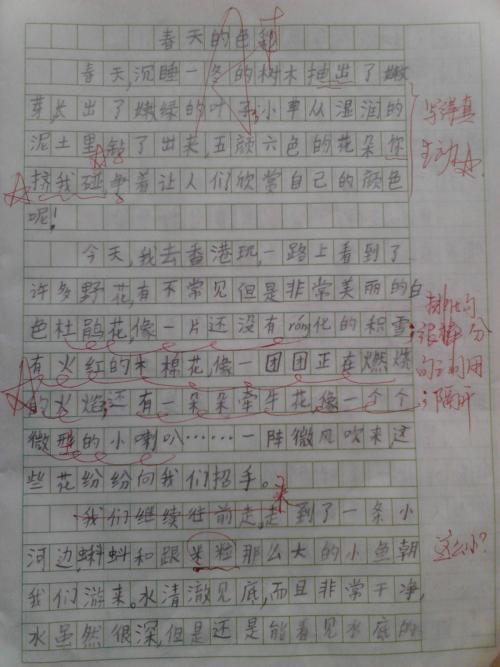 春天的色彩
春天,沉睡一冬的树木抽出了嫩
芽,长出了嫩绿的叶子;小草从湿润的
泥土里钻了出来,五颜六色的花朵你
写得真
生动
挤我碰争着让人们欣赏自己的颜色
呢!
今天,我去香港玩,一路上看到了
许多野花,有不常见但是非常美丽的白
色杜鹃花,像一片还没有róng化的积雪;
排比句
很棒 分
有火红的木棉花,像一团团正在燃烧
句之间用
的火焰;还有一朵朵牵牛花,像一个个
;隔开
微型的小喇叭……一阵微风吹来,这
些花纷纷向我们招手。
我们继续往前走,来到了一条小
河边,蝌蚪和跟米粒那么大的小鱼朝
这么小?
我们游来。水清澈见底,而且非常干净,
水虽然很深,但是还是能看见水底的